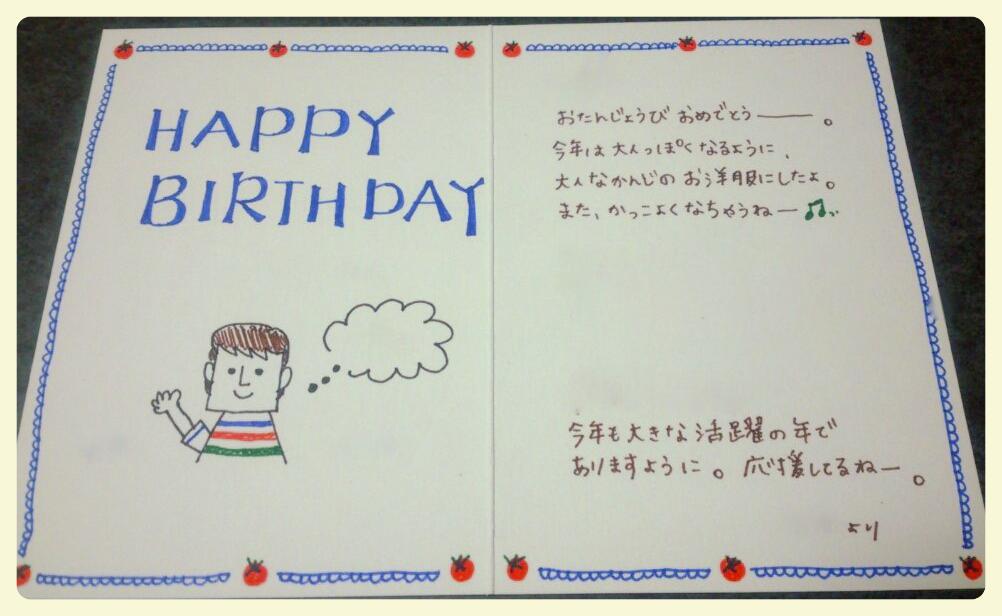 HAPPY
BIRTHDAY
おたんじょうび おめでとう——。
今年は大人っぽくなるように、
大人なかんじのお洋服にしたよ。
また、かっこよくなちゃうねー♫
今年も大きな活躍の年で
ありますように。応援してるねー。
より